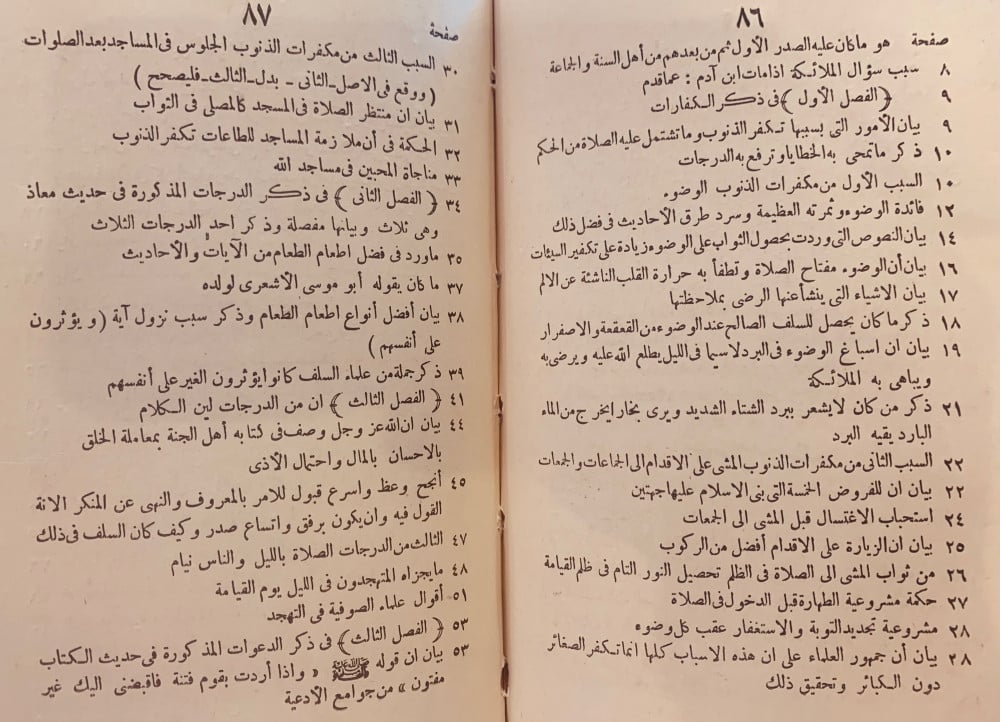 ٨٦
صفحة هو ماكان عليه الصدر الأول ثم من بعدهم من أهل السنة والجماعة
٨ سبب سؤال الملائكة اذا مات ابن آدم : عما قدم
٩ ﴿ الفصل الأول ﴾ فى ذكر الكفارات
٩ بيان الأمور التى بسببها تكفر الذنوب وما تشتمل عليه الصلاة من الحكم
١٠ ذكر ما تمحى به الخطايا وترفع به الدرجات
١٠ السبب الأول من مكفرات الذنوب الوضوء
١٢ فائدة الوضوء وثمرته العظيمة وسرد طرق الأحاديث فى فضل ذلك
١٤ بيان النصوص التى وردت بحصول الثواب على الوضوء زيادة على تكفير السيئات
١٦ بيان أن الوضوء مفتاح الصلاة وتطفأ به حرارة القلب الناشئة عن الالم
١٧ بيان الاشياء التى ينشأ عنها الرضى بملاحظتها
١٨ ذكر ما كان يحصل للسلف الصالح عند الوضوء من القعقعة والاصفرار
١٩ بيان ان اسباغ الوضوء فى البرد لاسيما فى الليل يطلع الله عليه ويرضى به
ويباهى به الملائكة
٢١ ذكر من كان لايشعر ببرد الشتاء الشديد ويرى بخار ايخرج من الماء
البارد يقيه البرد
٢٢ السبب الثانى من مكفرات الذنوب المشى على الاقدام الى الجماعات والجمعات
٢٢ بيان ان للفروض الخمسة التى بنى الاسلام عليها جهتين
٢٤ استحباب الاغتسال قبل المشى الى الجمعات
٢٥ بيان ان الزيارة على الاقدام أفضل من الركوب
٢٦ من ثواب المشى الى الصلاة فى الظلم تحصيل النور التام فى ظلم القيامة
٢٧ حكمة مشروعية الطهارة قبل الدخول فى الصلاة
٢٨ مشروعية تجديد التوبة والاستغفار عقب كل وضوء
٢٨ بيان أن جمهور العلماء على ان هذه الاسباب كلها انما تكفر الصغائر
دون الكبائر وتحقيق ذلك
٨٧
صفحة
٣٠ السبب الثالث من مكفرات الذنوب الجلوس فى المساجد بعد الصلوات
( ووقع فى الاصل ـ الثانى ـ بدل ـ الثالث ـ فليصحح )
٣١ بيان ان منتظر الصلاة فى المسجد كالمصلى فى الثواب
٣٢ الحكمة فى أن ملازمة المساجد للطاعات تكفر الذنوب
٣٣ مناجاة المحبين فى مساجد الله
٣٤ ﴿ الفصل الثانى ﴾ فى ذكر الدرجات المذكورة فى حديث معاذ
وهى ثلاث وبيانها مفصلة وذكر احد الدرجات الثلاث
٣٥ ماورد فى فضل اطعام الطعام من الآيات والأحاديث
٣٧ ما كان يقوله أبو موسى الأشعرى لولده
٣٨ بيان أفضل أنواع اطعام الطعام وذكر سبب نزول آية ( ويؤثرون
على أنفسهم )
٣٩ ذكر جملة من علماء السلف كانوا يؤثرون الغير على أنفسهم
٤١ ﴿ الفصل الثالث ﴾ ان من الدرجات لين الكلام
٤٤ بيان ان الله عز وجل وصف فى كتابه أهل الجنة بمعاملة الخلق
بالاحسان بالمال واحتمال الأذى
٤٥ أنجح وعظ واسرع قبول للامر بالمعروف والنهى عن المنكر الانة
القول فيه وان يكون برفق واتساع صدر وكيف كان السلف فى ذلك
٤٧ الثالث من الدرجات الصلاة بالليل والناس نيام
٤٨ مايجزاه المتهجدون فى الليل يوم القيامة
٥١ أقوال علماء الصوفية فى التهجد
٥٣ ﴿ الفصل الثالث ﴾ فى ذكر الدعوات المذكورة فى حديث الكتاب
٥٣ بيان ان قوله ﷺ « واذا أردت بقوم فتنة فاقبضنى اليك غير
مفتون » من جوامع الأدعية